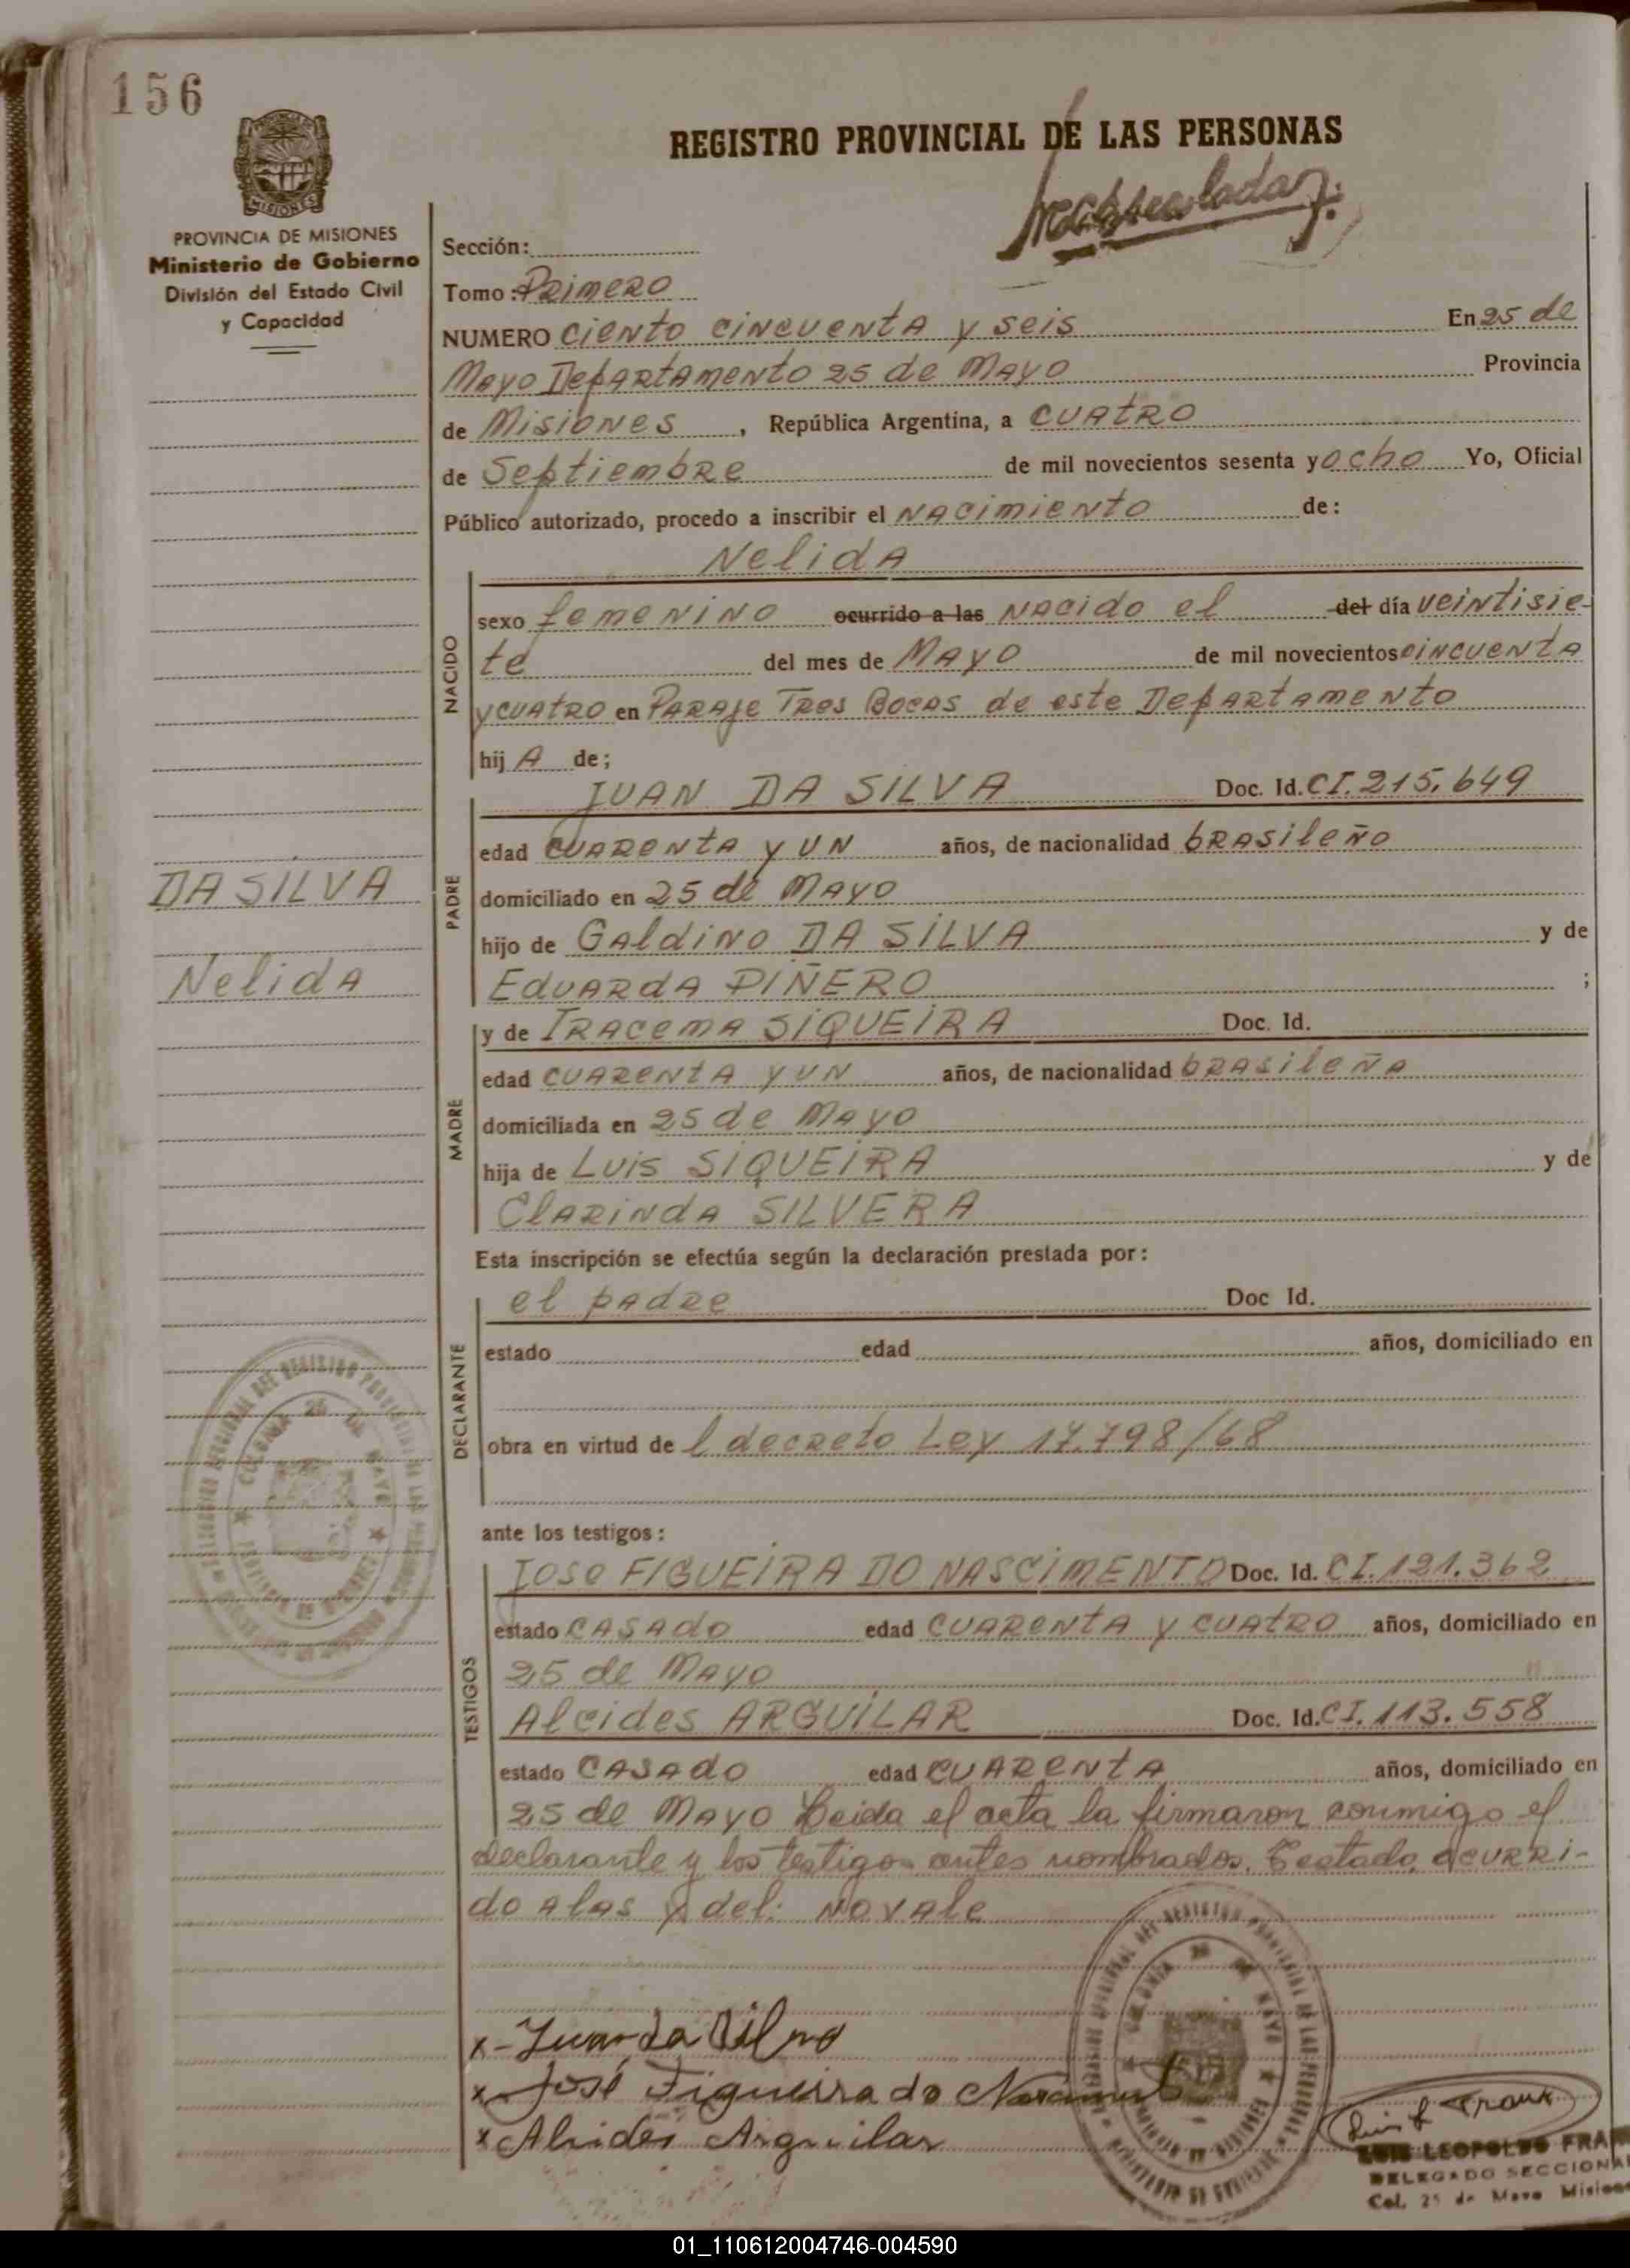 156
REGISTRO PROVINCIAL DE LAS PERSONAS
PROVINCIA DE MISIONES
Ministerio de Gobierno
División del Estado Civil
y Capacidad
Sección:
Tomo: Primero
NUMERO Ciento cincuenta y seis En 25 de
Mayo Departamento 25 de Mayo Provincia
de Misiones, República Argentina, a cuatro
de Septiembre de mil novecientos sesenta y ocho Yo, Oficial
Público autorizado, procedo a inscribir el nacimiento de:
Nelida
NACIDO
sexo femenino ocurrido a las nacido el del día veintisie-
te del mes de Mayo de mil novecientos cincuenta
y cuatro en Paraje Tres Bocas de este Departamento
hij A de;
PADRE
JUAN DA SILVA Doc. Id. CI. 215.649
edad cuarenta y un años, de nacionalidad brasileño
domiciliado en 25 de Mayo
DA SILVA
hijo de Galdino DA SILVA y de
Nelida
Eduarda PIÑERO ;
MADRE
y de Iracema SIQUEIRA Doc. Id.
edad cuarenta y un años, de nacionalidad brasileña
domiciliada en 25 de Mayo
hija de Luis SIQUEIRA y de
Clarinda SILVERA
Esta inscripción se efectúa según la declaración prestada por:
DECLARANTE
el padre Doc Id.
estado edad años, domiciliado en
obra en virtud de l decreto Ley 17.798/68
ante los testigos:
TESTIGOS
Jose FIGUEIRA DO NASCIMENTO Doc. Id. CI. 121.362
estado casado edad cuarenta y cuatro años, domiciliado en
25 de Mayo
Alcides ARGUILAR Doc. Id. CI. 113.558
estado casado edad cuarenta años, domiciliado en
25 de Mayo Leida el acta la firmaron conmigo el
declarante y los testigos antes nombrados. Testado, ocurri-
do a las y del: no vale
x- Juan da Silva
x- José Figueira do
x Alcides Arguilar
LUIS LEOPOLDO FRA
DELEGADO SECCIONAL
Col. 25 de Mayo Misiones
01_110612004746-004590